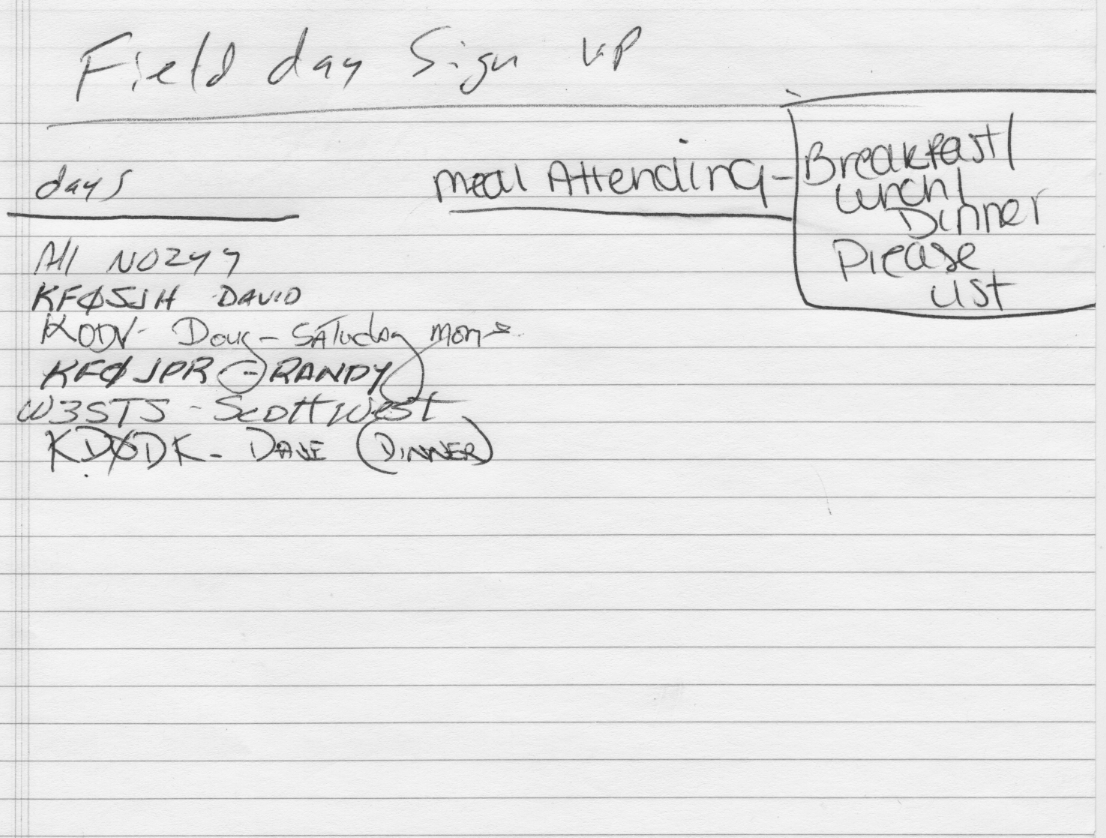 Field day Sign up
days
meal Attending -
Breakfast/
Lunch/
Dinner
Please
List
All NOZYY
KFØSJH DAVID
KODV - Doug - SATuday
KFØJPR - RANDY
W3STS - Scott West
KDØDK - DAVE (DINNER)